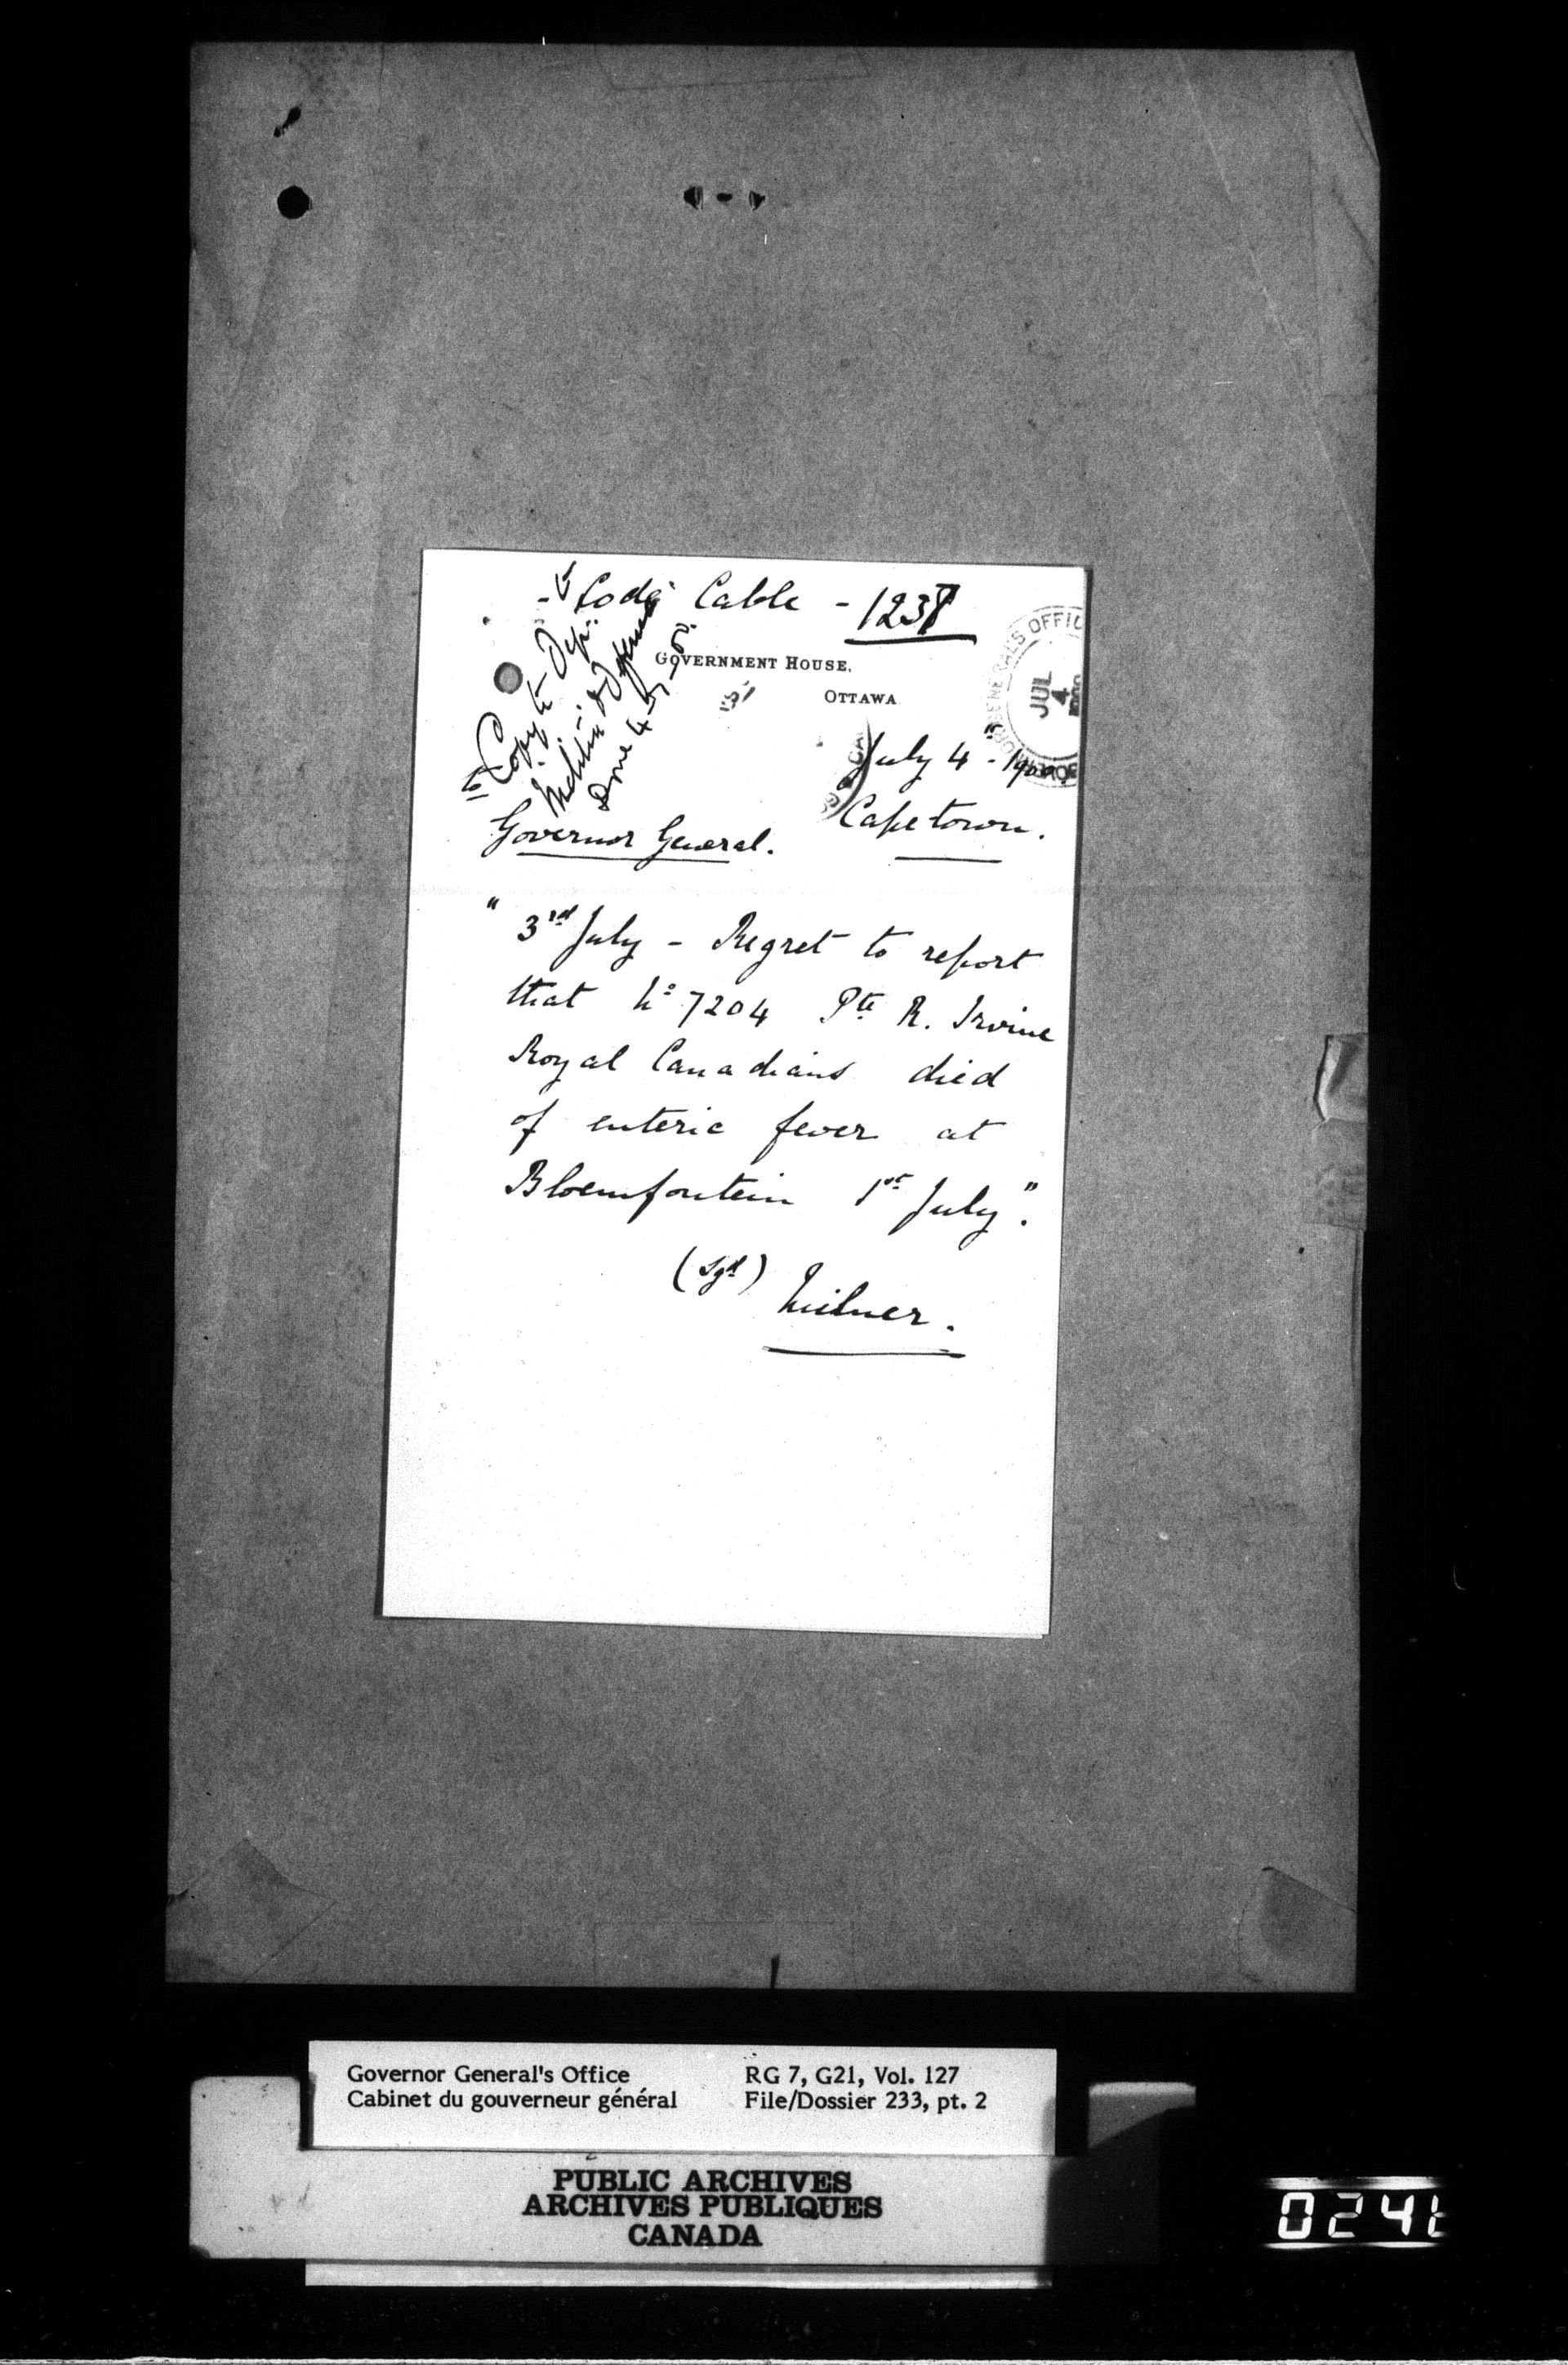 Code Cable - 1238
GOVERNMENT HOUSE,
OTTAWA
GENERAL'S OFFIC
JUL
4
Copy to Dep.
Militia & Defence
Done 4-7-
July 4 - 1900.
Capetown.
Governor General.
" 3rd July - Regret to report
that No 7204 Pte R. Irvine
Royal Canadians died
of enteric fever at
Bloemfontein 1st July".
(Sgd) Milner.
Governor General's Office
Cabinet du gouverneur général
RG 7, G21, Vol. 127
File/Dossier 233, pt. 2
PUBLIC ARCHIVES
ARCHIVES PUBLIQUES
CANADA
0241